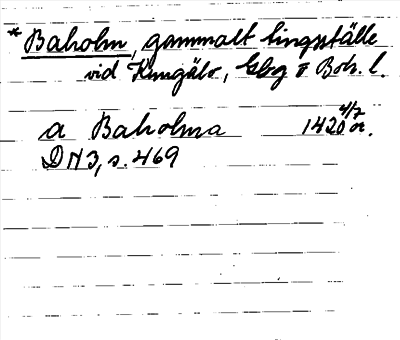 * Baholm, gammalt tingställe
vid Kungälv, Gbg o Boh. l.
a Baholma 1420 4/7 or.
DN 3, s. 469